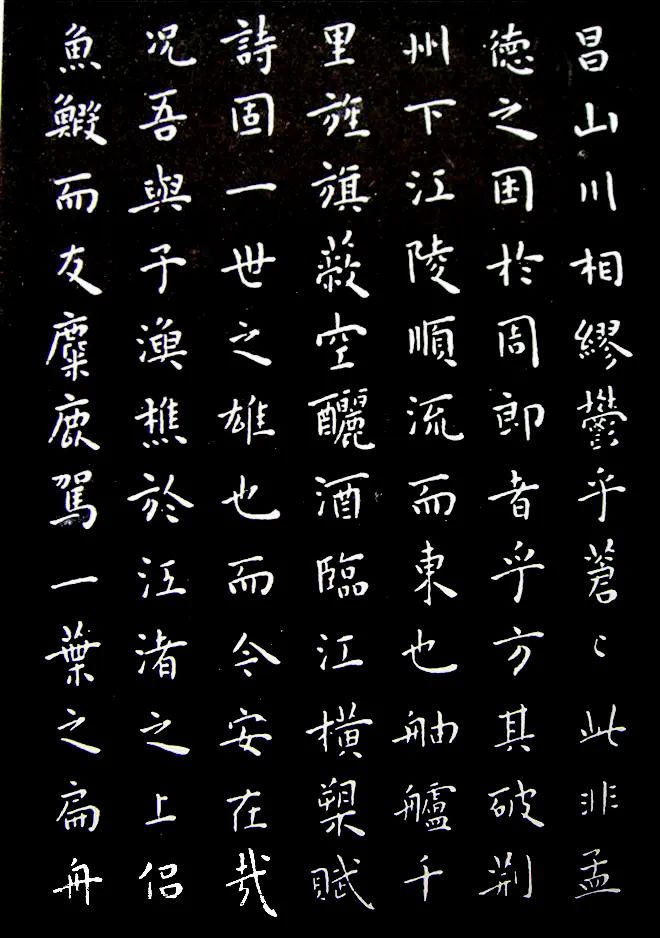 昌山川相繆鬱乎蒼〻此非孟
德之困於周郎者乎方其破荆
州下江陵順流而東也舳艫千
里旌旗蔽空釃酒臨江橫槊賦
詩固一世之雄也而今安在哉
况吾與子漁樵於江渚之上侶
魚鰕而友麋鹿駕一葉之扁舟